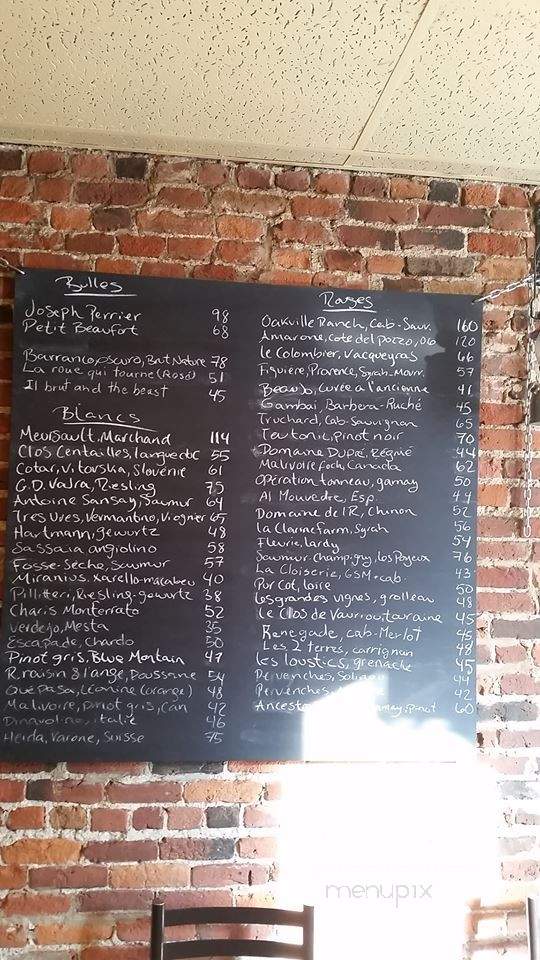 Bulles
Joseph Perrier 98
Petit Beaufort 68
Barranco oscuro, Brut Nature 78
La roue qui tourne (Rosé) 51
Il brut and the beast 45
Blancs
Meursault, Marchand 114
Clos Centailles, languedoc 55
Cotar, Vitovska, Slovénie 61
G.D. Vajra, Riesling 75
Antoine Sansay, Saumur 64
Tres Uves, Vermantino, Viognier 65
Hartmann, gewurtz 48
Sassaia angiolino 58
Fosse-Seche, Saumur 57
Miranius, xarello-macabeu 40
Pillitteri, Riesling-gewurtz 38
Charis Monterrato 52
Verdejo, Mesta 35
Escapade, chardo 50
Pinot gris, Blue Montain 47
R. raisin & l'ange, Roussane 54
Quépasa, Léonine (orange) 48
Malivoire, pinot gris, Can 42
Dinavolino, italie 46
Heida, Varone, Suisse 75
Rouges
Oakville Ranch, Cab-Sauv. 160
Amarone, cote del pozzo, 06 120
le Colombier, Vacqueyras 66
Figuière, Provence, Syrah-Mourv. 57
Beauj, cuvée a l'ancienne 41
Gambai, Barbera-Ruché 45
Truchard, Cab-Sauvignon 65
Teutonic, Pinot noir 70
Domaine Dupré, Régnié 44
Malivoire foch, Canada 62
Opération tonneau, gamay 50
Al Mouvedre, Esp. 44
Domaine de l'R, Chinon 52
la Clarine farm, Syrah 56
Fleurie, lardy 54
Saumur champigny, los Poyeux 76
La Cloiserie, GSM-cab. 43
Pur Cot, loire 50
les grandes vignes, grolleau 48
Le Clos de Vaurroutouraine 45
Renegade, cab-Merlot 45
Les 2 terres, carrignan 48
les loustics, grenache 45
Pervenches, 44
Pervenches, 42
gamay-Pinot 60
menupix